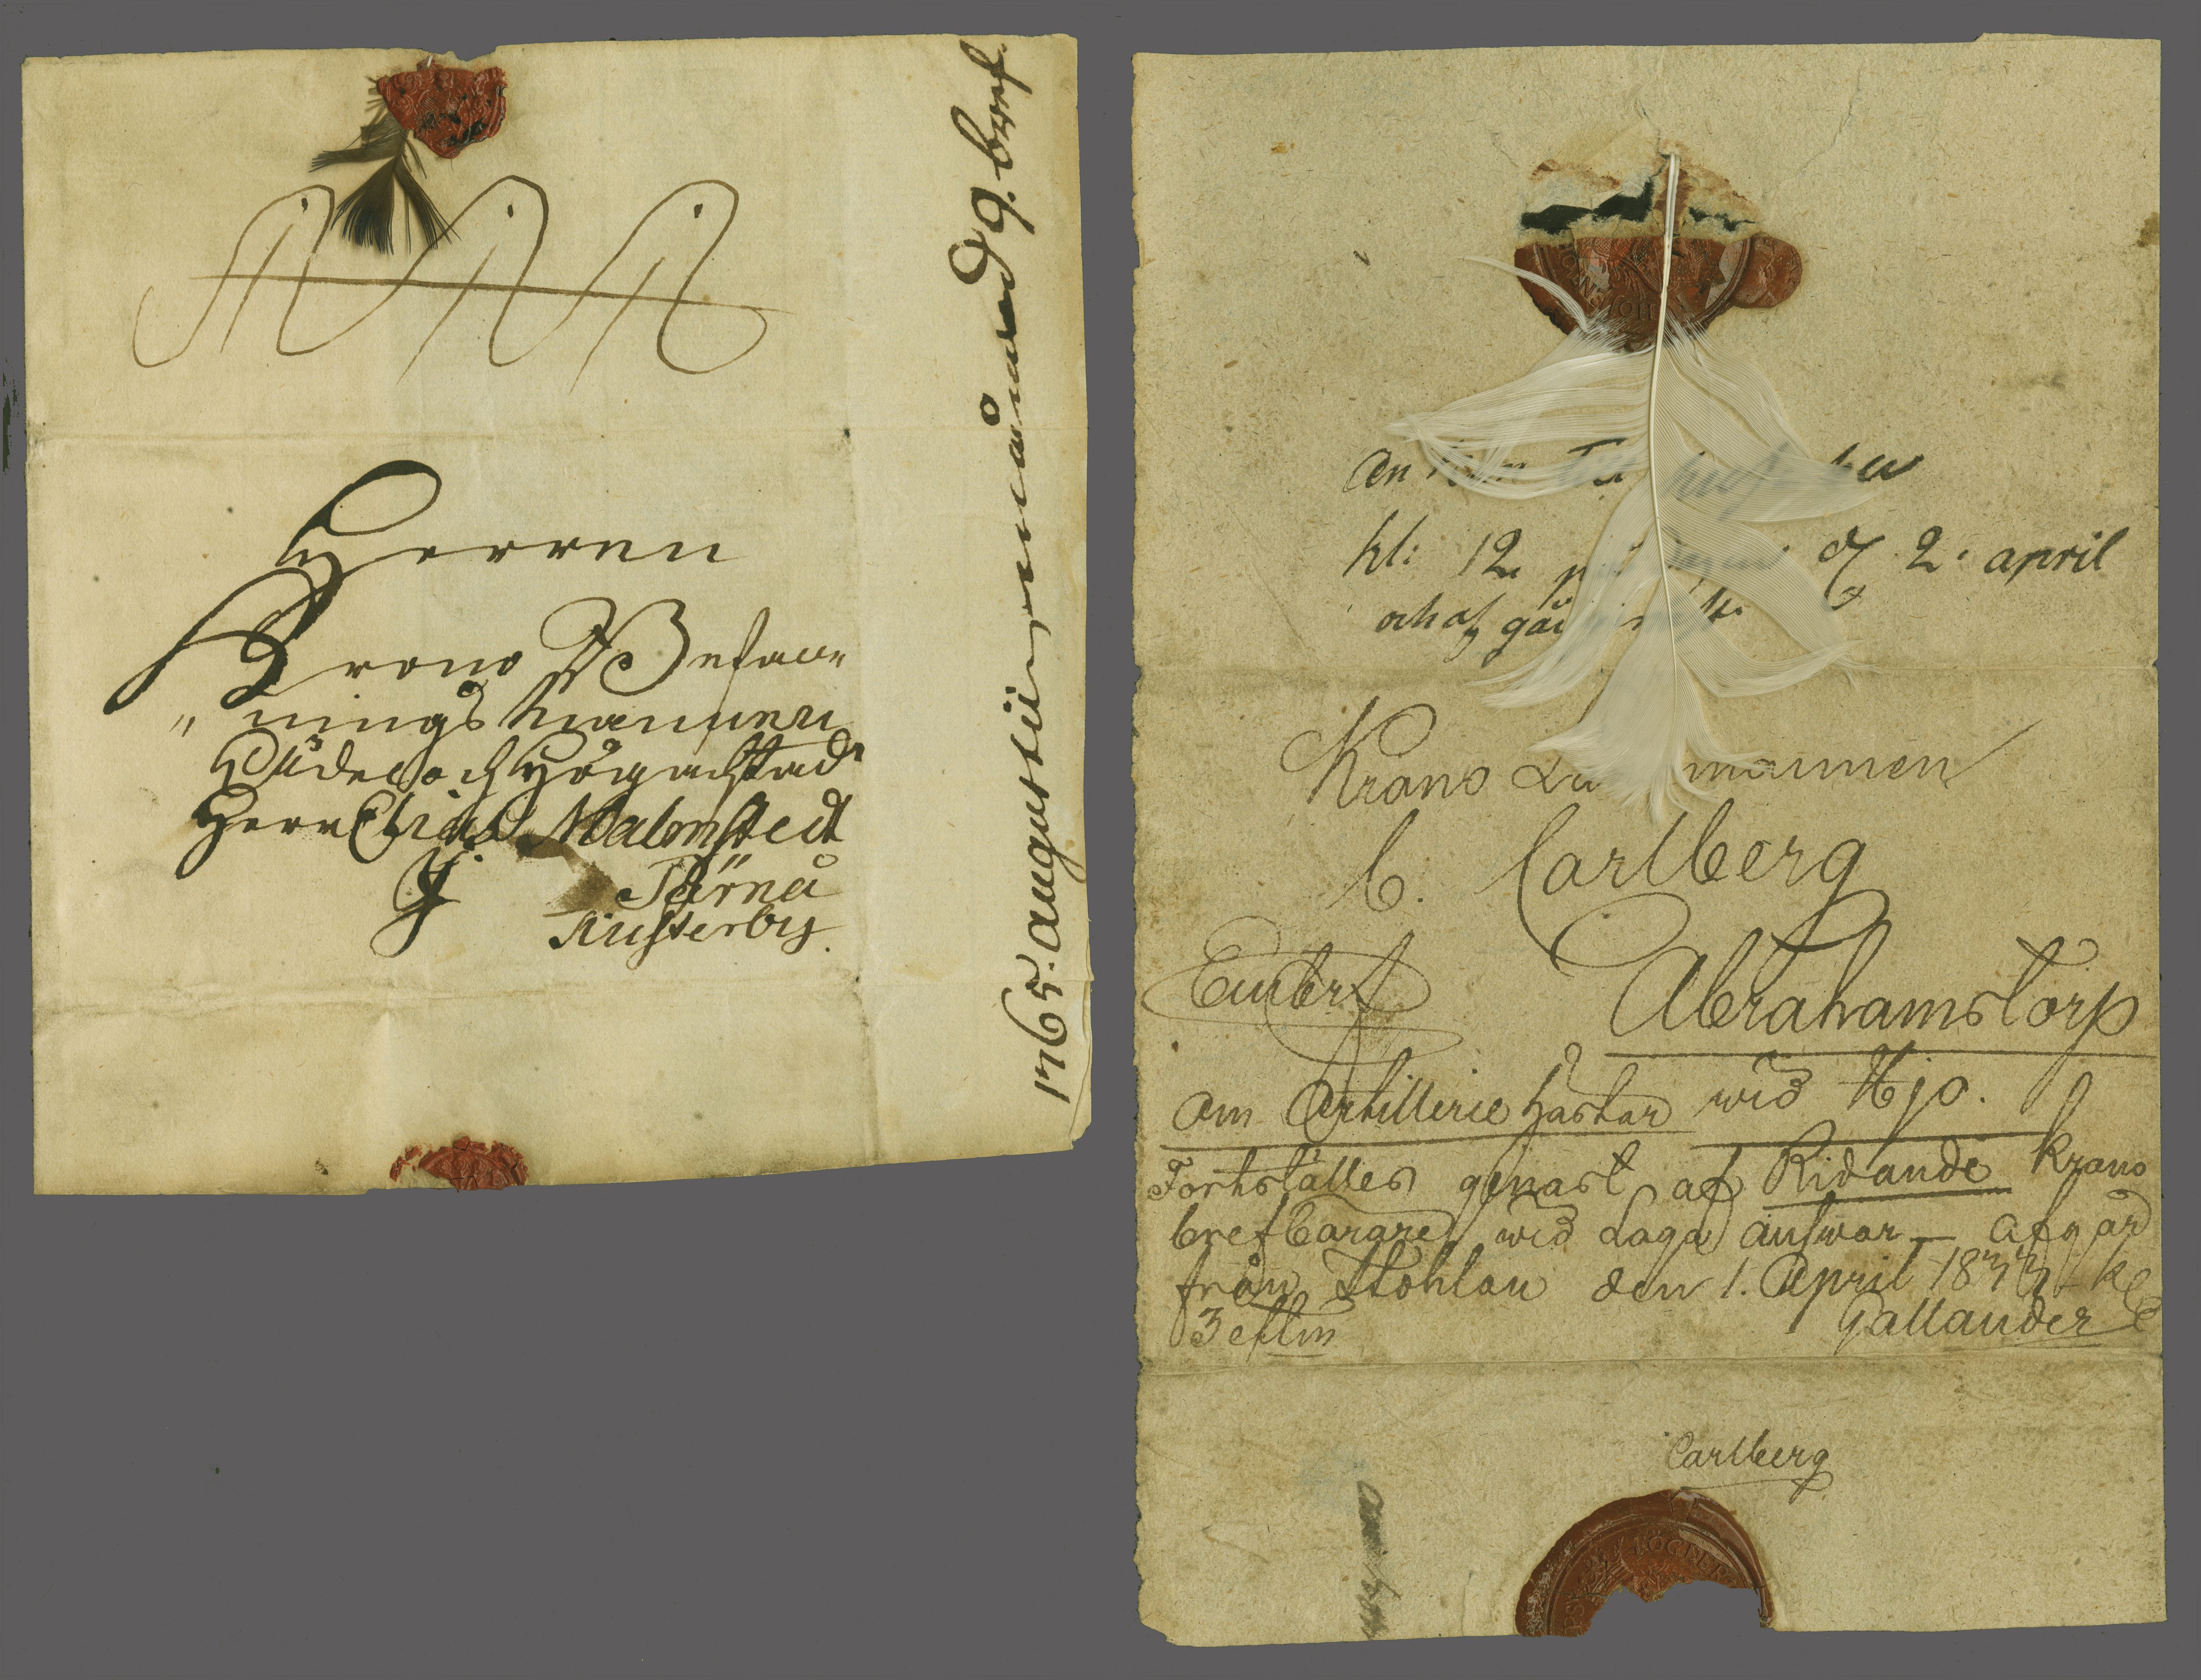 Herren
Krono Befall
"ningsmannen
Ädel och Högachtad
Herr Elias Malmstedt
J. Tärna
Kusterby.
1765. augustii månad 9. bref.
kl: 12 d. 2. april
och af
Krono mannen
C. Carlberg
Abrahamstorp
om Artillerie hästar wid Hjo.
Forthskaffes genast af Ridande Krono
brefbärare wid Laga answar — afgår
från den 1. April 1833 - kl
3 eftm Gallander
Carlberg